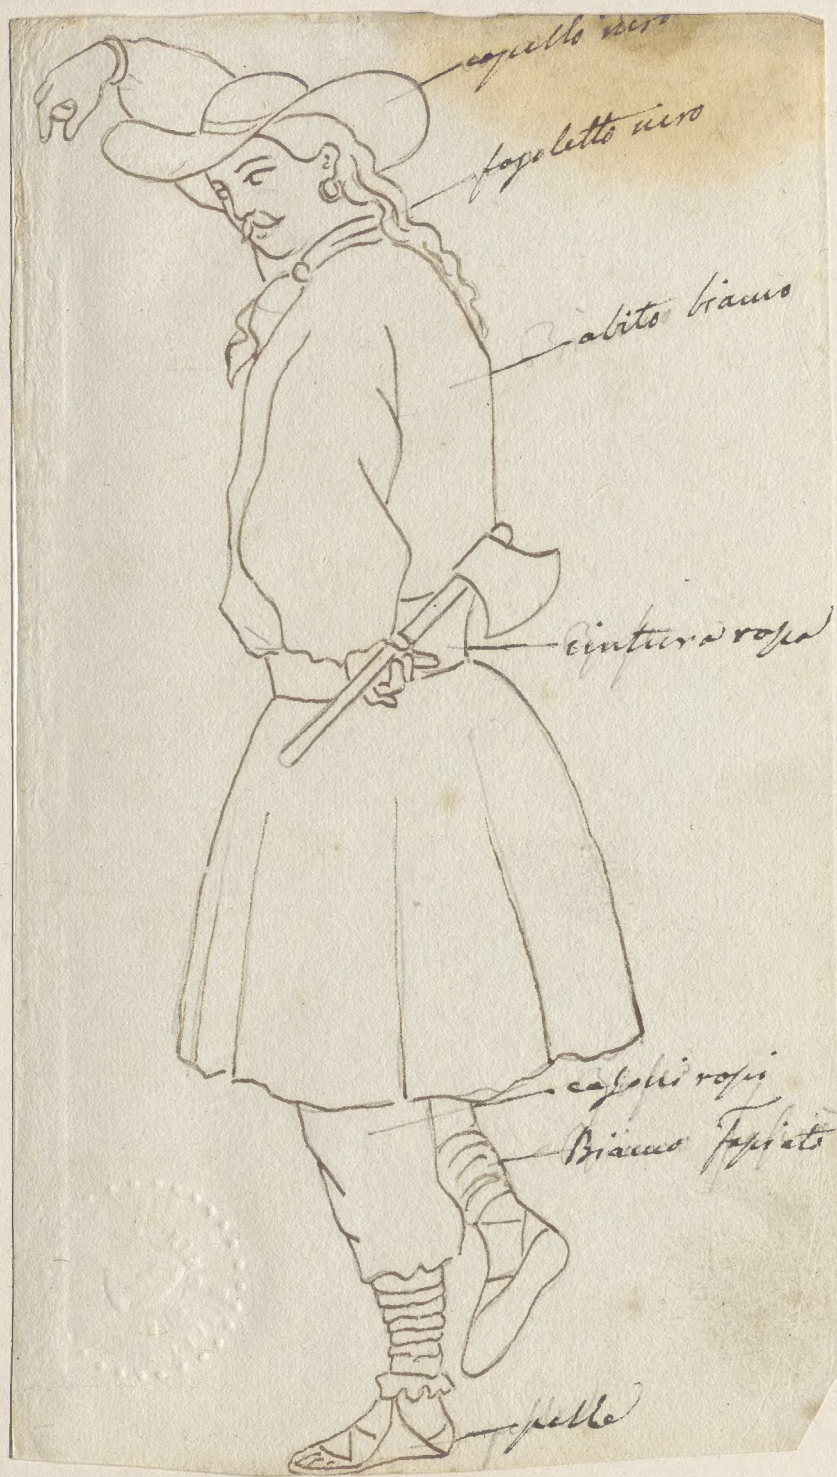 capello nero
fazoletto nero
abito bianco
cintura rossa
calzoni rossi
Bianco Fassiato
pelle